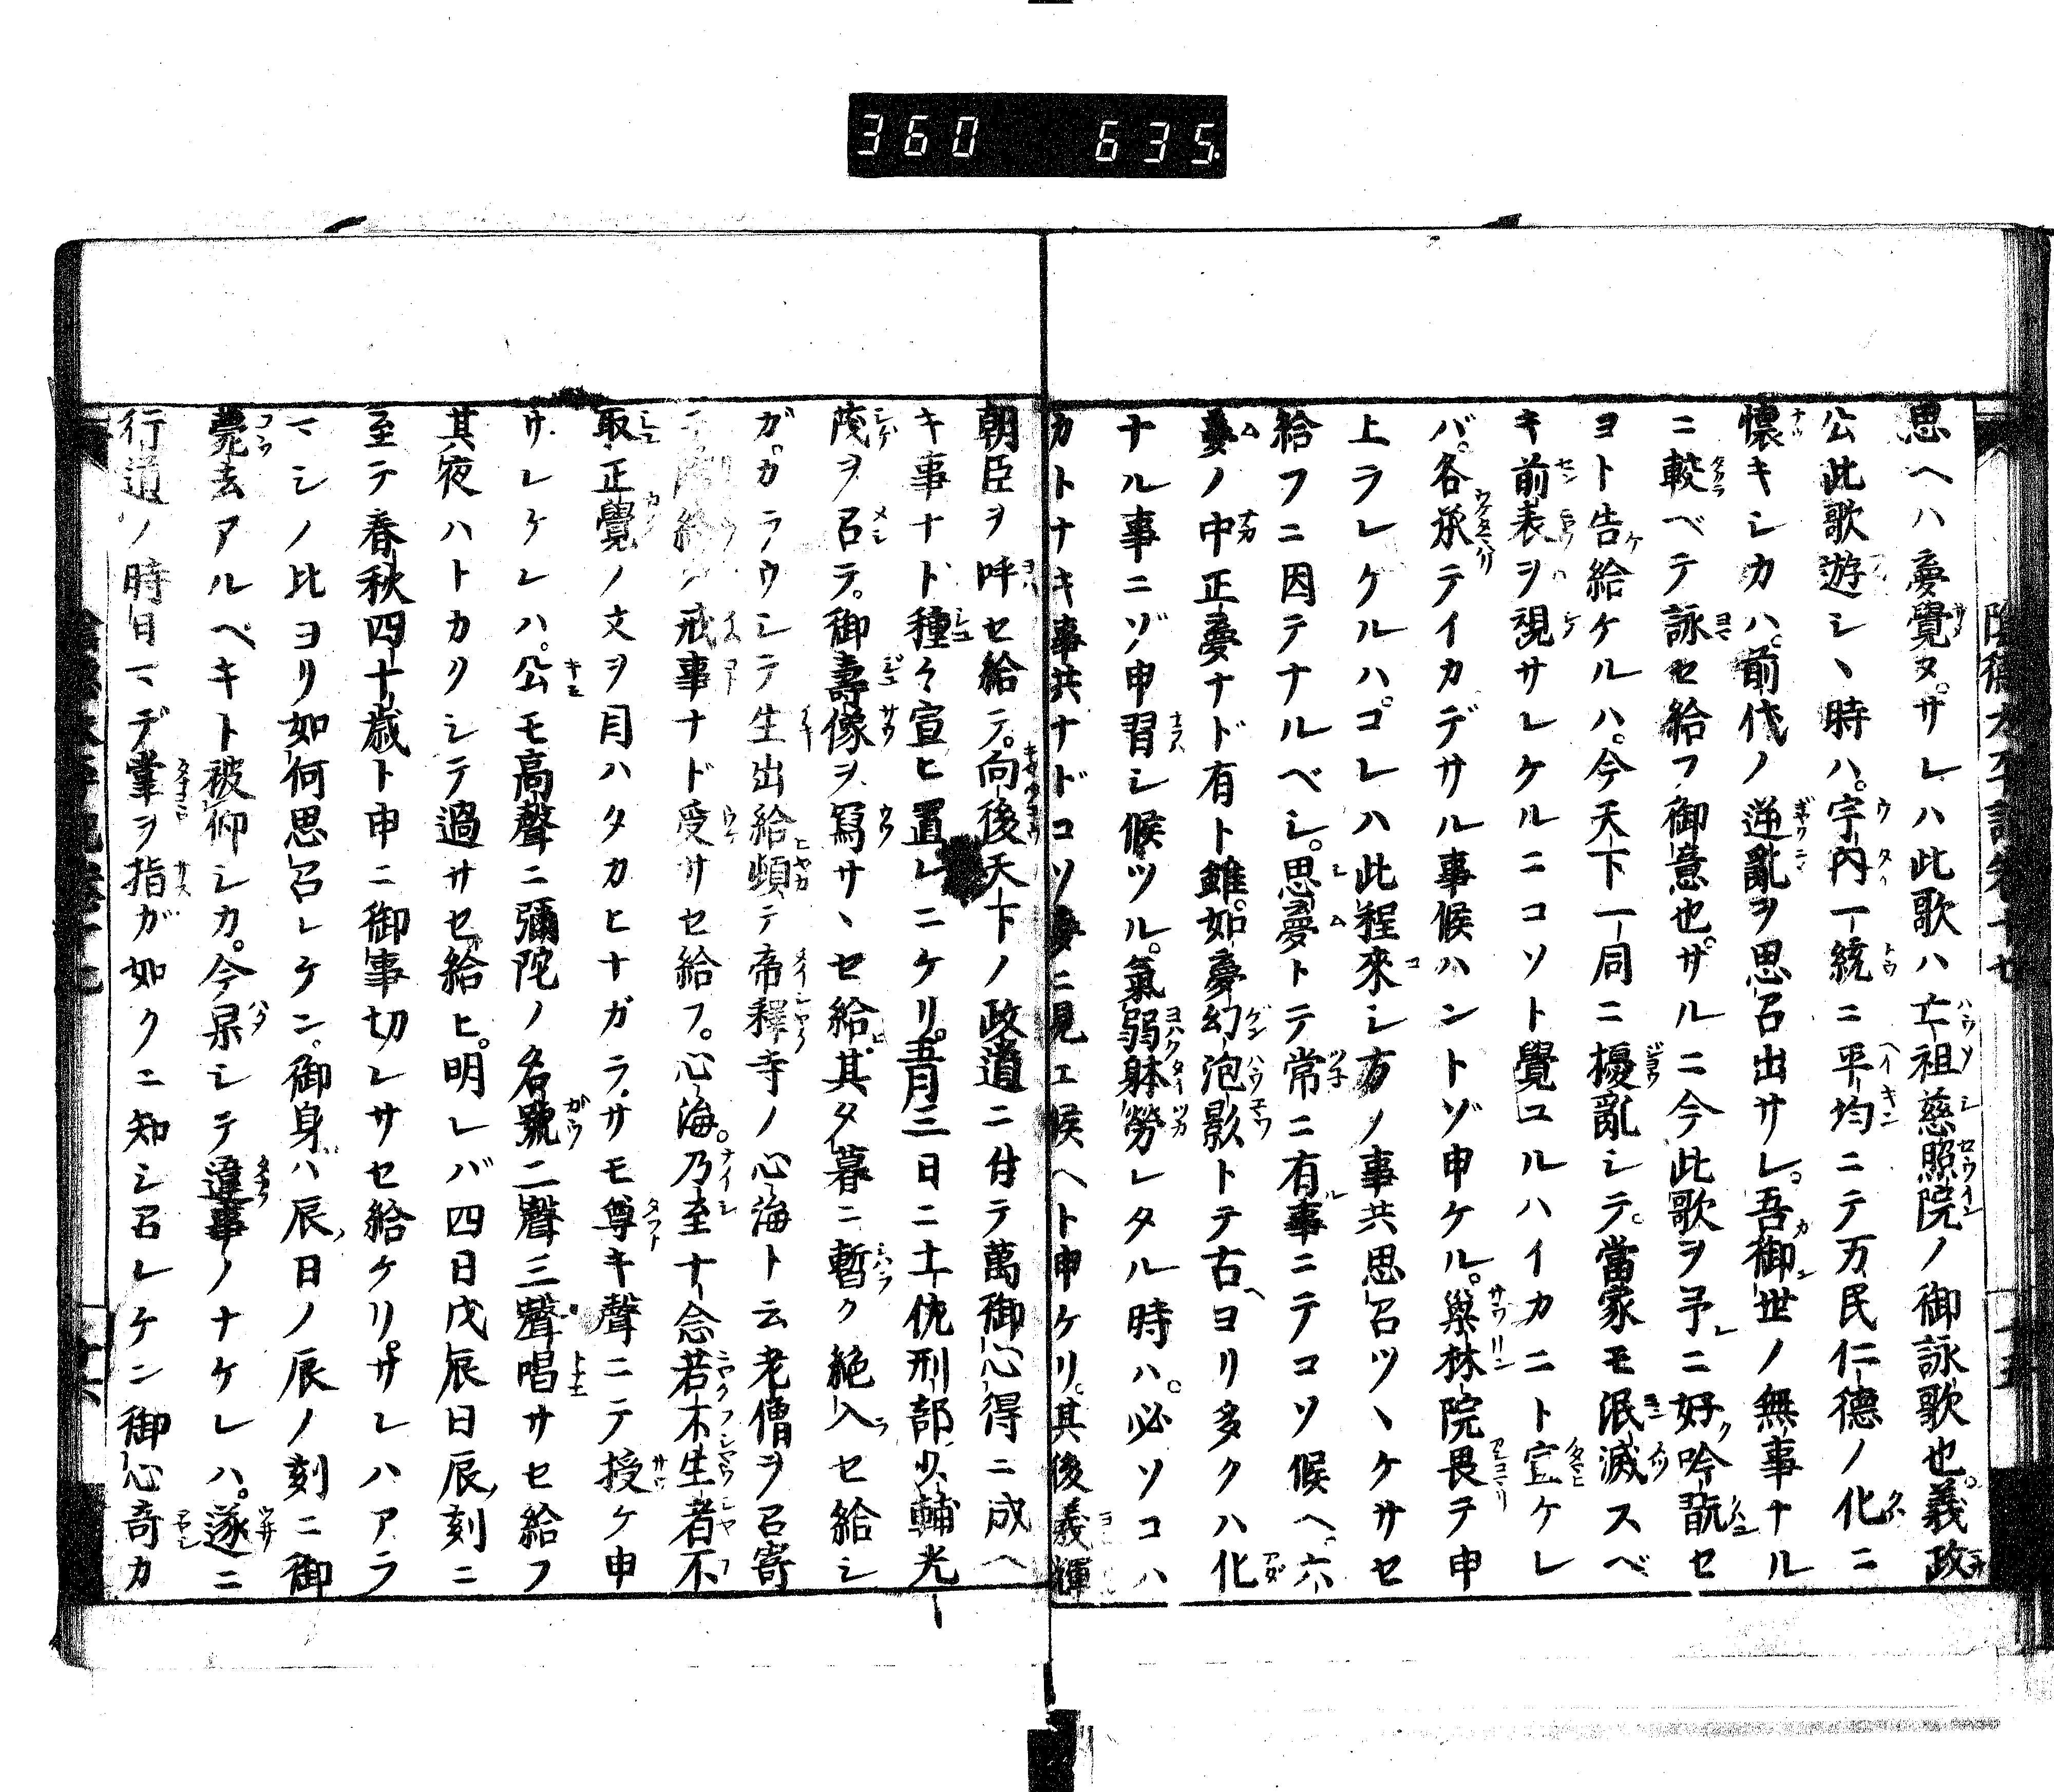 360 635.
思ヘハ夢覺ヌ。サレハ此歌ハ亡祖慈照院ノ御詠歌也。義政
公此歌遊シヽ時ハ。宇内一統ニ平均ニテ万民仁德ノ化ニ
懷キシカハ。前代ノ逆亂ヲ思召出サレ。吾御世ノ無事ナル
ニ較ベテ詠セ給フ御意也。サルニ今此歌ヲ予ニ好吟翫セ
ヨト告給ケルハ。今天下一同ニ擾亂シテ。當家モ泯滅スベ
キ前表ヲ視サレケルニコソト覺ユルハイカニト宣ケレ
バ。各承テイカデサル事候ハントゾ申ケル。巣林院畏テ申
上ラレケルハ。コレハ此程來シ方ノ事共思召ツヽケサセ
給フニ因テナルベシ。思夢トテ常ニ有事ニテコソ候ヘ。六
夢ノ中正夢ナド有ト雖。如夢幻泡影トテ古ヨリ多クハ化
ナル事ニゾ申習シ候ツル。氣弱躰勞レタル時ハ。必ソコハ
カトナキ事共ナドコソ夢ニ見エ候ヘト申ケリ。其後義輝
朝臣ヲ呼セ給テ。向後天下ノ政道ニ付テ萬御心得ニ成ヘ
キ事ナド種々宣ヒ置レニケリ。五月三日ニ土佐刑部少輔光
茂ヲ召テ。御壽像ヲ寫サヽセ給。其夕暮ニ暫ク絶入セ給シ
ガ。カラウシテ生出給頻テ帝釋寺ノ心海ト云老僧ヲ召寄
テ。臨終ノ戒事ナド受サセ給フ。心海。乃至十念若不生者不
取正覺ノ文ヲ月ハタカヒナガラ。サモ尊キ聲ニテ授ケ申
サレケレハ。公モ高聲ニ彌陀ノ名號二聲三聲唱サセ給フ
其夜ハトカクシテ過サセ給ヒ。明レバ四日戊辰日辰刻ニ
至テ春秋四十歳ト申ニ御事切レサセ給ケリ。サレハアラ
マシノ比ヨリ如何思召レケン。御身ハ辰日ノ辰ノ刻ニ御
薨去アルベキト被仰シカ。今果シテ違事ノナケレハ。遂ニ
行道ノ時日マデ掌ヲ指ガ如クニ知シ召レケン御心奇カ